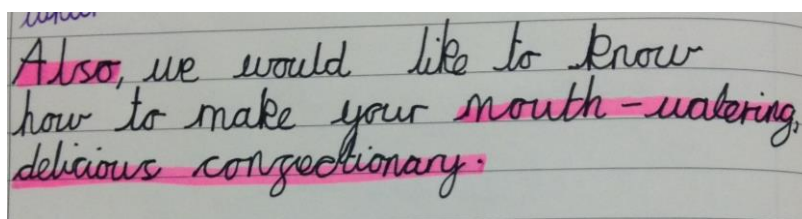 Also, we would like to know
how to make your mouth-watering,
delicious confectionary.